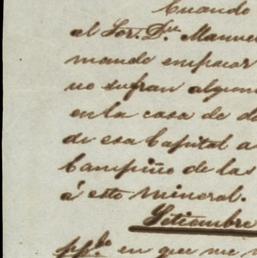 Cuando
al Sor. Dn. Manuel
mande empacar
no sufran alguno
en la casa de
de esa Capital a
Campiño de las
á este mineral.
Setiembre
en que me